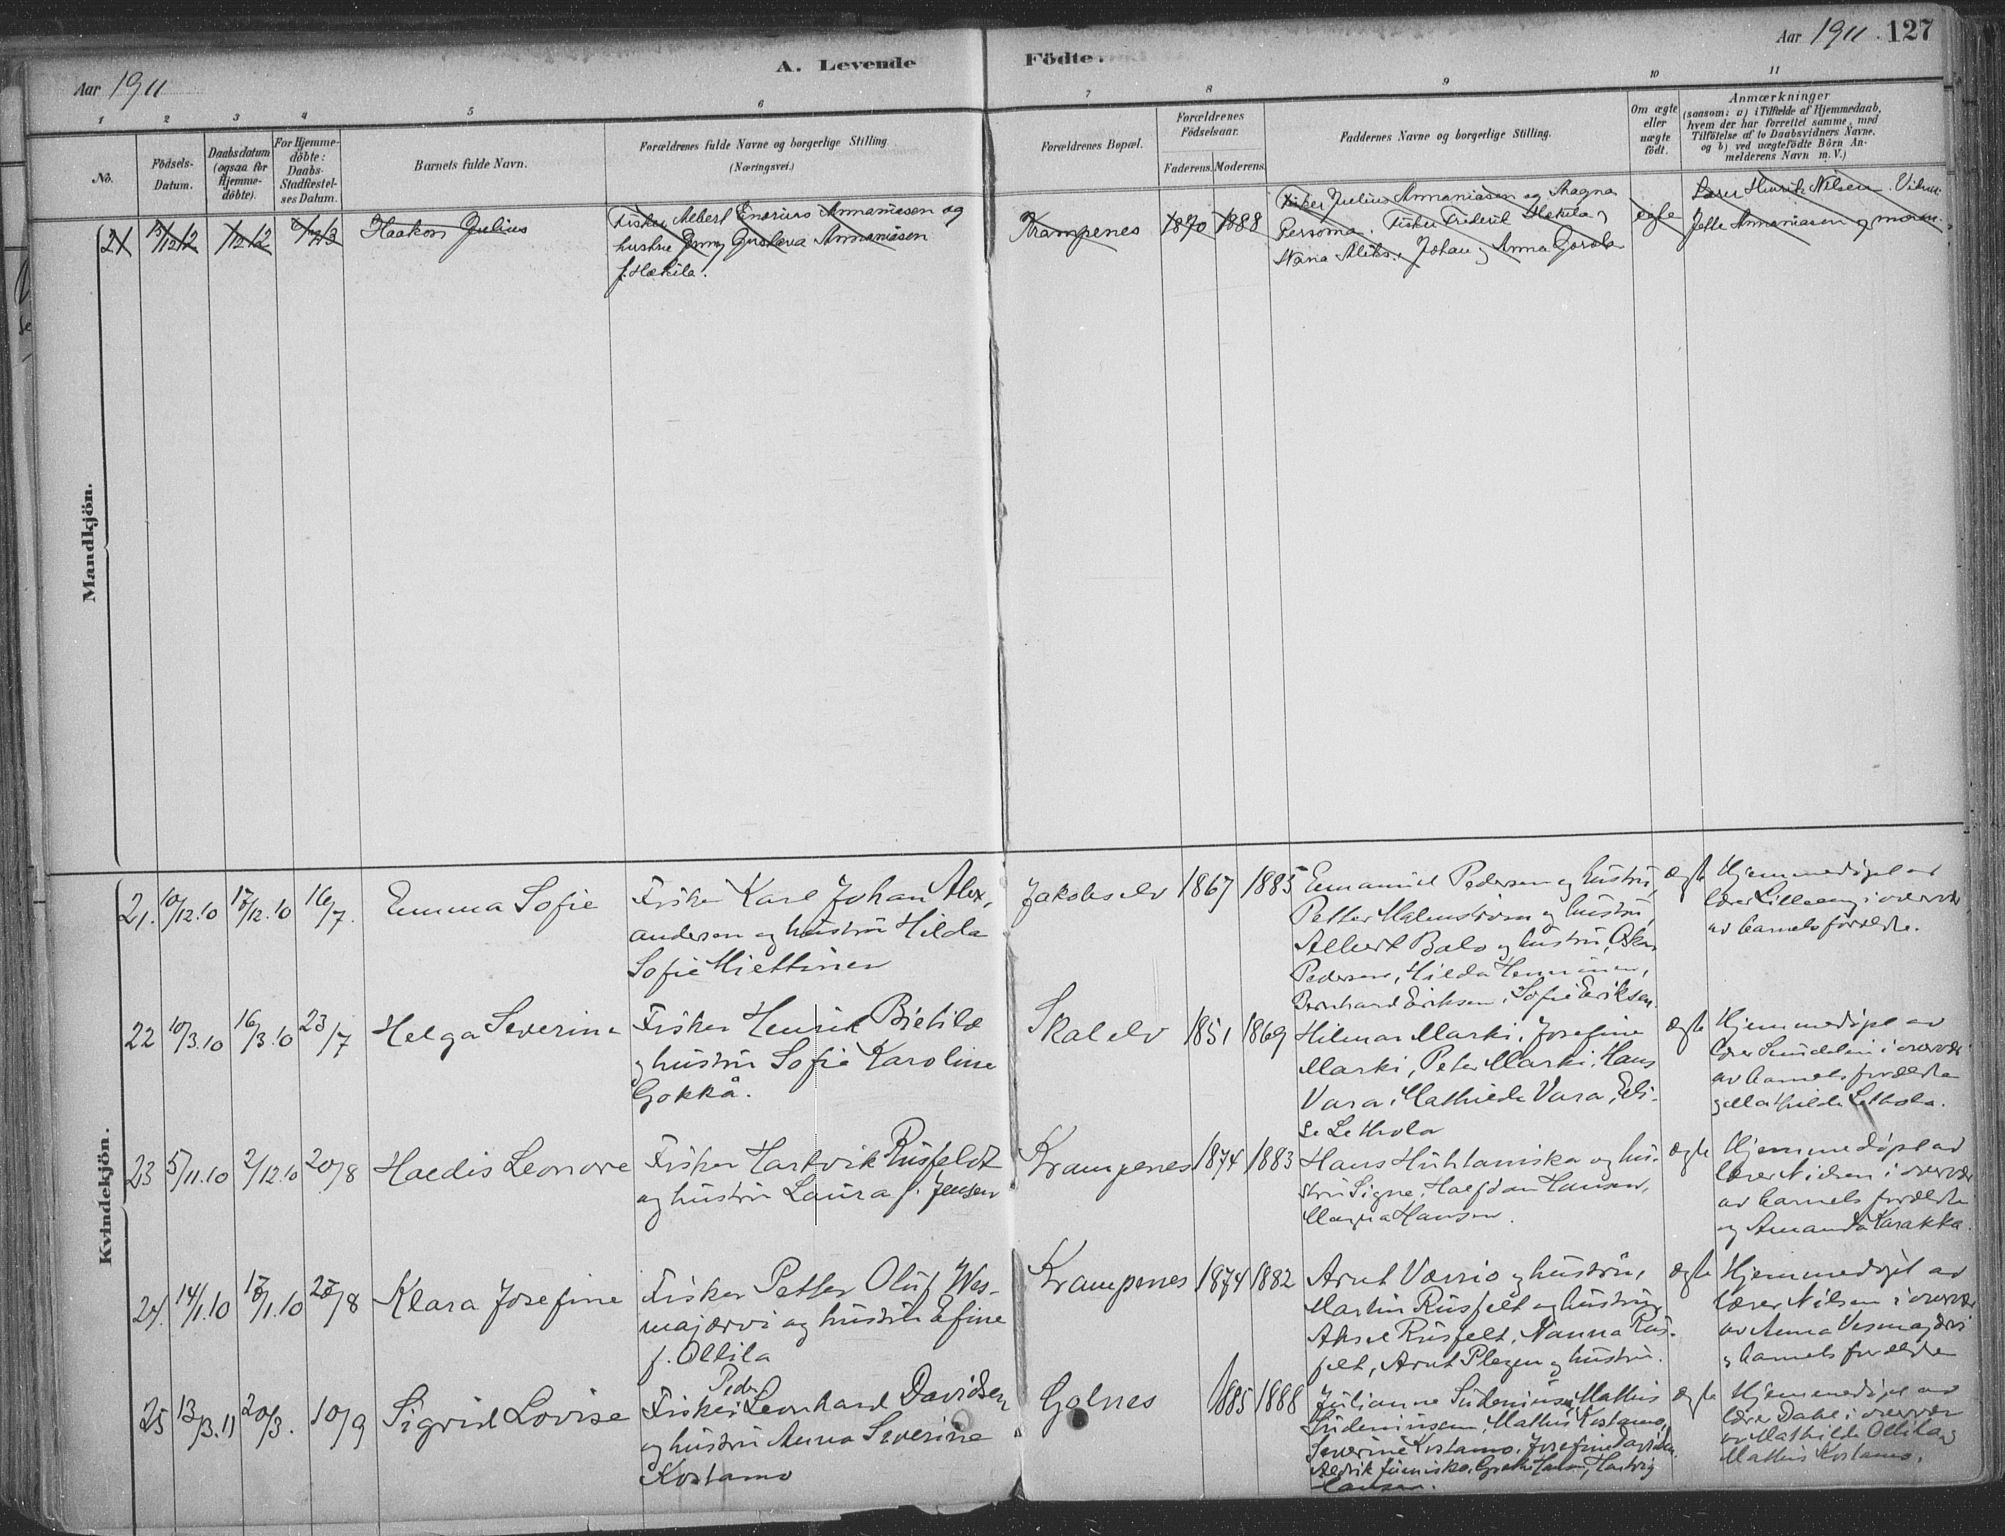 Aar 1911
A. Levende
Födte.
Aar 1911. 127
1 2 3 4 5 6 7 8 9 10 11
No.
Födsels-
Datum.
Daabsdatum
(ogsaa for
Hjemme-
döbte).
For Hjemme-
döbte:
Daabs-
Stadfæstel-
ses Datum.
Barnets fulde Navn.
Forældrenes fulde Navne og borgerlige Stilling
(Næringsvei.)
Forældrenes Bopæl.
Forældrenes
Födselsaar.
Faderens. Moderens.
Faddernes Navne og borgerlige Stilling.
Om ægte
eller
uægte
födt.
Anmærkninger
(saasom: a) i Tilfælde af Hjemmedaab,
hvem der har forrettet samme, med
Tilföielse af to Daabsvidners Navne,
og b) ved uægtefödte Börn An-
melderens Navn m. V.)
Mandkjön.
21 Haakon Julius
Fisker Albert Ananiassen og
hustru Jenny Gustava Annaniasen
f. Hækila.
Krampenes 1870 1888
Fisker Julius Annaniasen og Magna
Persoma. Fisker Frederik Hekila,
Maria Johan og Anna Gorola
ægte
Lærer Henrik Nilsen
Jette Annaniasen og moren.
Kvindekjön.
21. 10/12.10 17/12.10 16/7. Emma Sofie
Fisker Karl Johan Alex-
andersen og hustru Hilda
Sofie Miettinen
Jakobselv 1867 1885
Emanuel Pedersen og hustru,
Petter Malmström og hustru,
Albert Balo og hustru, Oskar
Pedersen, Hilda Henninen,
Bernhard Eriksen, Sofie Eriksen.
ægte
Hjemmedøpt av
lærer Lilleeng i overvær
av barnets forældre.
22 10/3.10 16/3.10 23/7 Helga Severine
Fisker Henrik Bietilæ
og hustru Sofie Karoline
Gokkå.
Skalelv 1851 1869
Hilmar Marki, Josefine
Marki, Peter Marki, Hans
Vara, Mathilde Vara, Eli-
se Lethola
ægte
Hjemmedøpt av
lærer i overvær
av barnets forældre
og Mathilde Lethola.
23 5/11.10 2/12.10 20/8 Haldis Leonore
Fisker Hartvik Rusfeldt
og hustru Laura f. Jensen
Krampenes 1874 1883
Hans Huhtaniska og hu-
stru Signe, Halfdan Hansen,
Magna Hansen.
ægte
Hjemmedøpt av
lærer Nilsen i overvær
av barnets forældre
og Amanda Karakka.
24. 14/1.10 17/1.10 27/8 Klara Josefine
Fisker Petter Oluf Wes-
majærvi og hustru Efine
f. Ollila
Krampenes 1874 1882
Arnt Værrio og hustru,
Martin Rusfelt og hustru,
Aksel Rusfelt, Nanna Rus-
felt, Arnt Plezen og hustru.
ægte
Hjemmedøpt av
lærer Nilsen i overvær
av Anna Vesmajærvi
og barnets forældre
25 13/3.11 20/3. 10/9 Sigrid Lovise
Peder
Fisker Leonhard Davidsen
og hustru Anna Severine
Kostamo
Golnes 1885 1888
Julianne Sudeniusen, Mathis
Sudeniusen, Mathis Kostamo,
Severine Kostamo, Josefine Davidsen
Fredrik Juunisko, Grethe Hansen, Hartvig
Hansen.
ægte
Hjemmedøpt av
lærer Dahl i overvær
av Mathilde Ollila og
Mathis Kostamo.